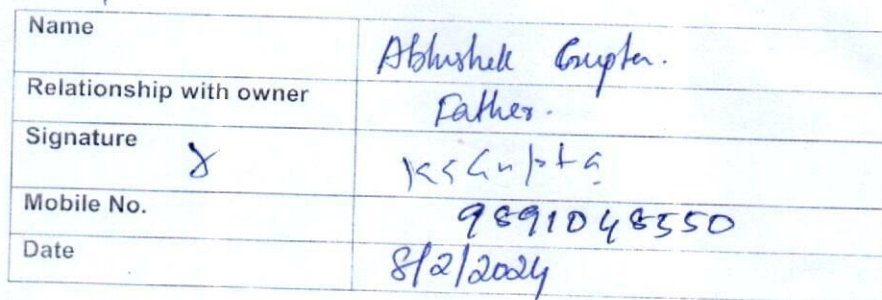 Name Abhishek Gupta.
Relationship with owner Father.
Signature KSGupta
Mobile No. 9891048550
Date 8/2/2024